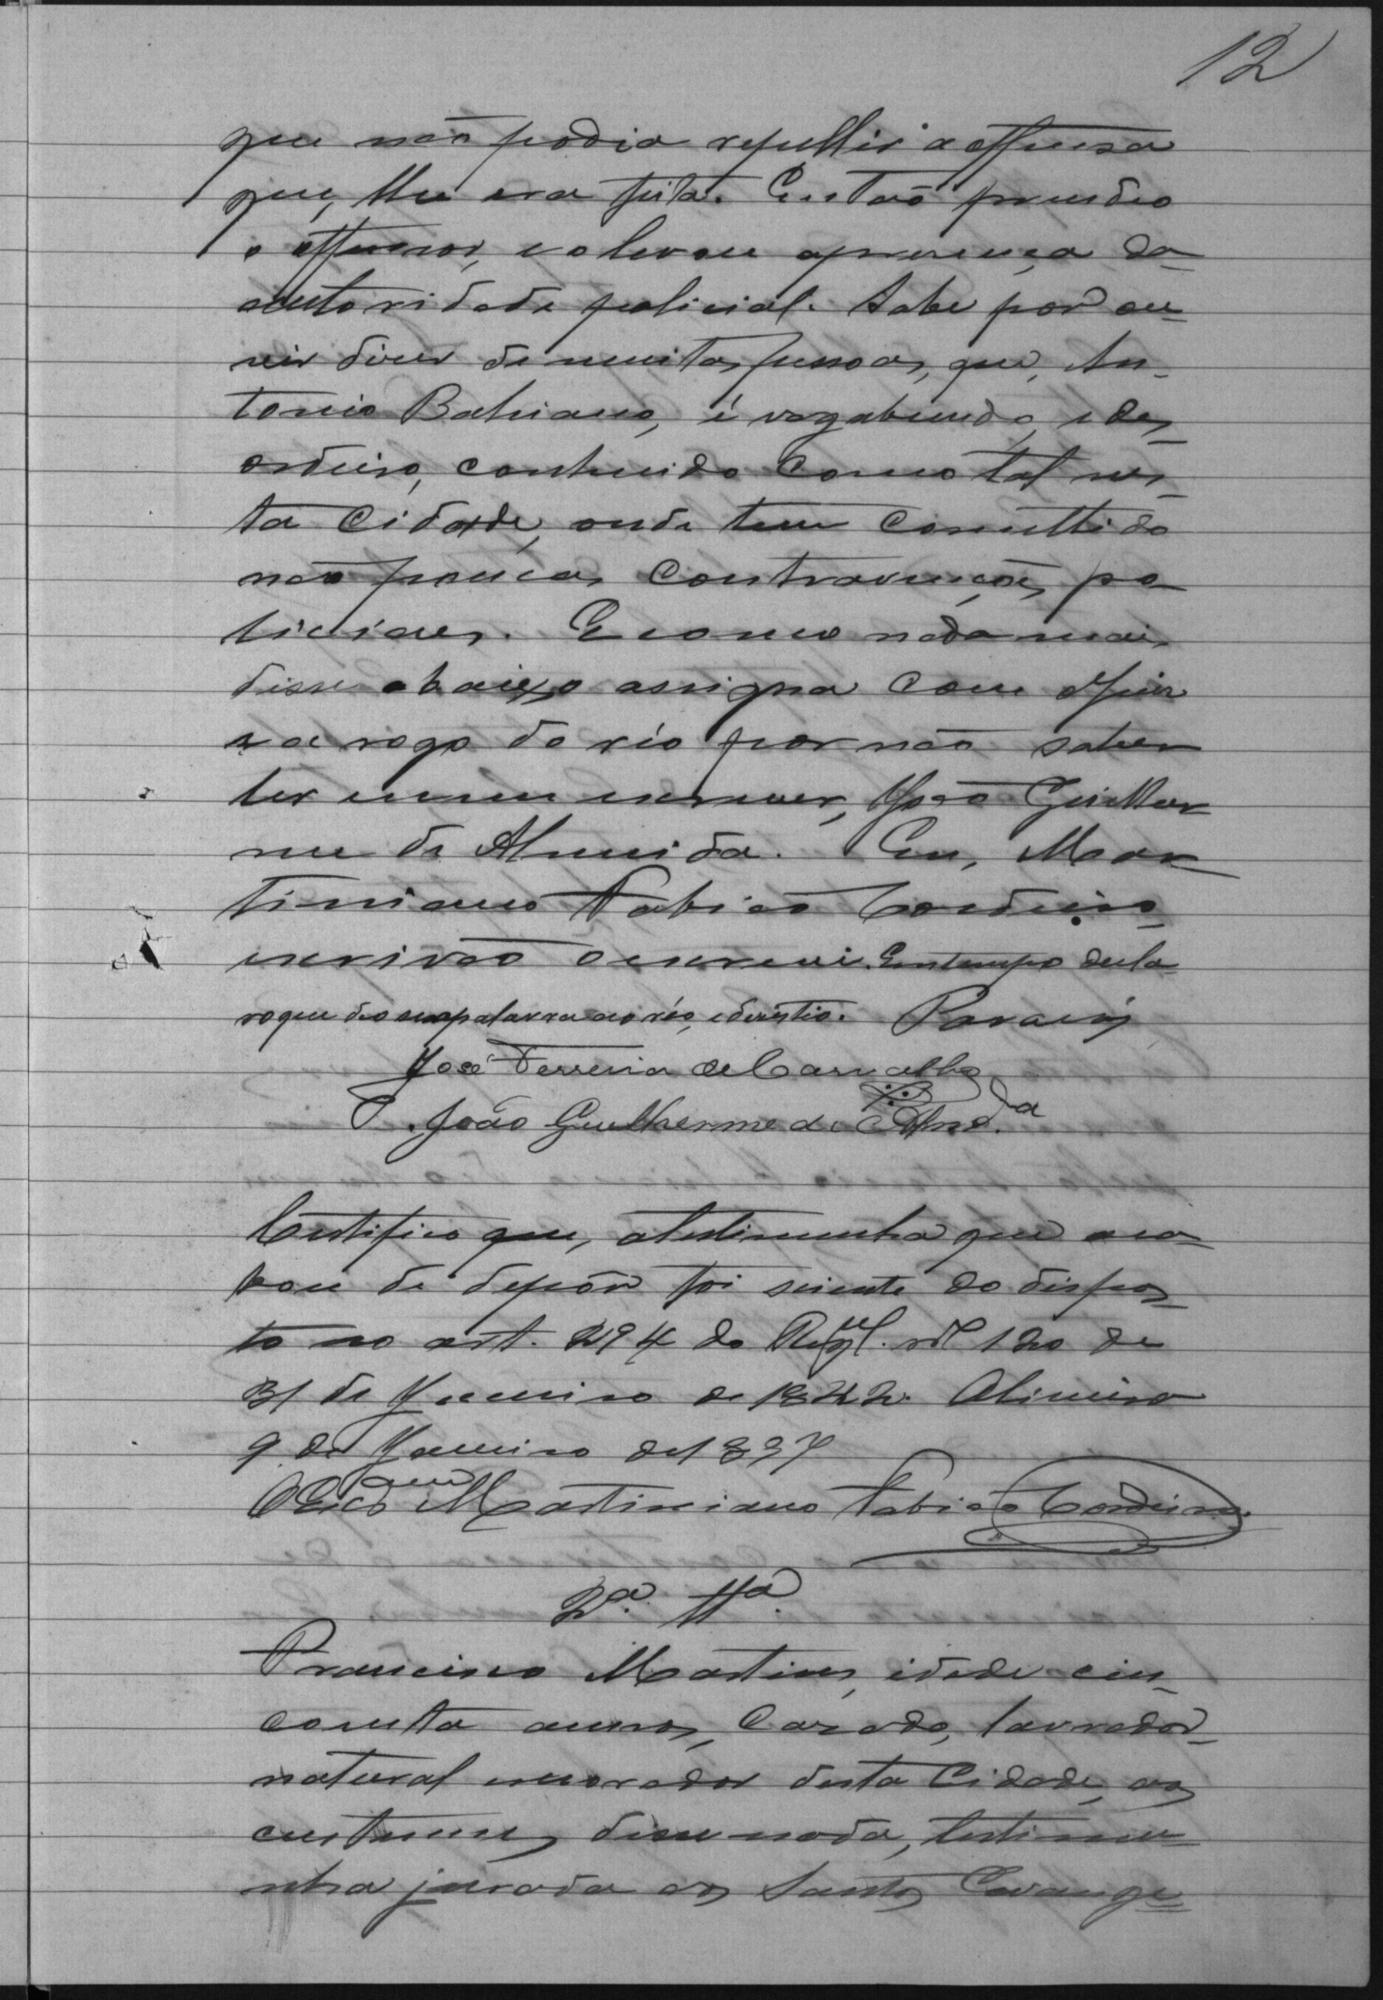 12
que não podia repellir a offensa
que, lhe era feita. Então prendeo
o offensor, e o levou a presença da
autoridade policial. Sabe por ou-
vir dizer de muitas pessoas, que, An-
tonio Bahiano, é vagabundo, e des-
ordeiro, conhecido como tal nes-
ta Cidade, onde tem comettido
não poucas contravenções po-
liciaes. E como nada mais
disse abaixo assigna com o Juiz
e a rogo do réo por não saber
ler nem escrever, João Guilher
me de Almeida. Eu, Mar-
timiano Fabião Cordeiro
escrivão o escrevi. Em tempo decla-
ro que deo a palavra ao réo, e desistio.
José Ferreira de Carvalho
João Guilherme de Almd.da
Certifico que, a testimunha que aca-
bou de depôr foi sciente do dispos-
to no art. 294 do Regul. nº 120 de
31 de Janeiro de 1842. Limeira
9 de Janeiro de 1897
Martimiano Fabião Cordeiro
2ª. Tª.
Francisco Martins, idade cin-
coenta annos, Casado, lavrador
natural e morador desta Cidade, aos
custumes disse nada, testimu-
nha jurada aos Santos Evange-